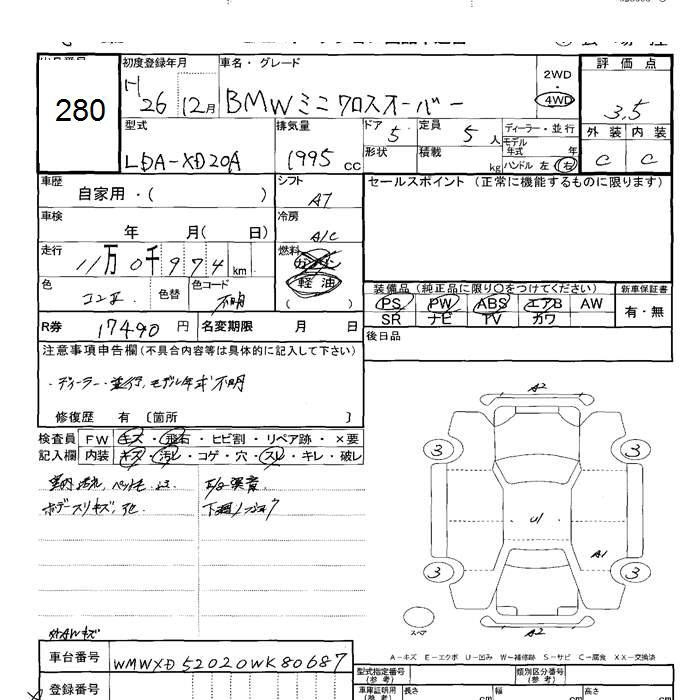 初度登録年月 車名・グレード 評価点
280
H 26 12月 BMWミニクロスオーバー 2WD ・ 4WD 3.5
型式 排気量 ドア 5 定員 5人 ディーラー・並行 外装 内装
モデル年式 年
LDA-XD20A 1995 cc 形状 積載 kg ハンドル 左 右 C C
車歴 自家用・( ) シフト AT セールスポイント (正常に機能するものに限ります)
車検 年 月( 日) 冷房 A/C
走行 11万0千974km 燃料 ガソリン 軽油 ( )
色 コン 色替 色コード 不明
装備品 (純正品に限り○をつけてください) 新車保証書
PS PW ABS エアB AW 有・無
SR ナビ TV カワ
R券 17490円 名変期限 月 日 後日品
注意事項申告欄(不具合内容等は具体的に記入して下さい)
・ディーラー・並行、モデル年式不明
修復歴 有 〔箇所 〕
検査員記入欄 FW キズ・飛石・ヒビ割・リペア跡・×要
内装 キズ・汚レ・コゲ・穴・スレ・キレ・破レ
A2
3 3
U1
A1
3 3
スペア A2
A-キズ E-エクボ U-凹み W-補修跡 S-サビ C-腐食 XX-交換済
外AWキズ
車台番号 WMWXD52020WK80687
型式指定番号(参考) 類別区分番号(参考)
登録番号 車庫証明用(参考) 長さ cm 幅 cm 高さ cm